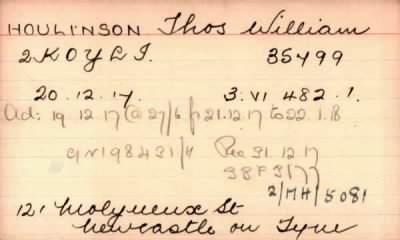 HOULINSON Thos William
2 K O Y L I. 35499
20.12.17. 3.VI 482.1.
Ad: 19 12 17 @ 27/6 fr 21.12.17 to 22.1.18
GN198431/4 Rec 31.12.17
2/MH/5081
121 Molyneux St
Newcastle on Tyne